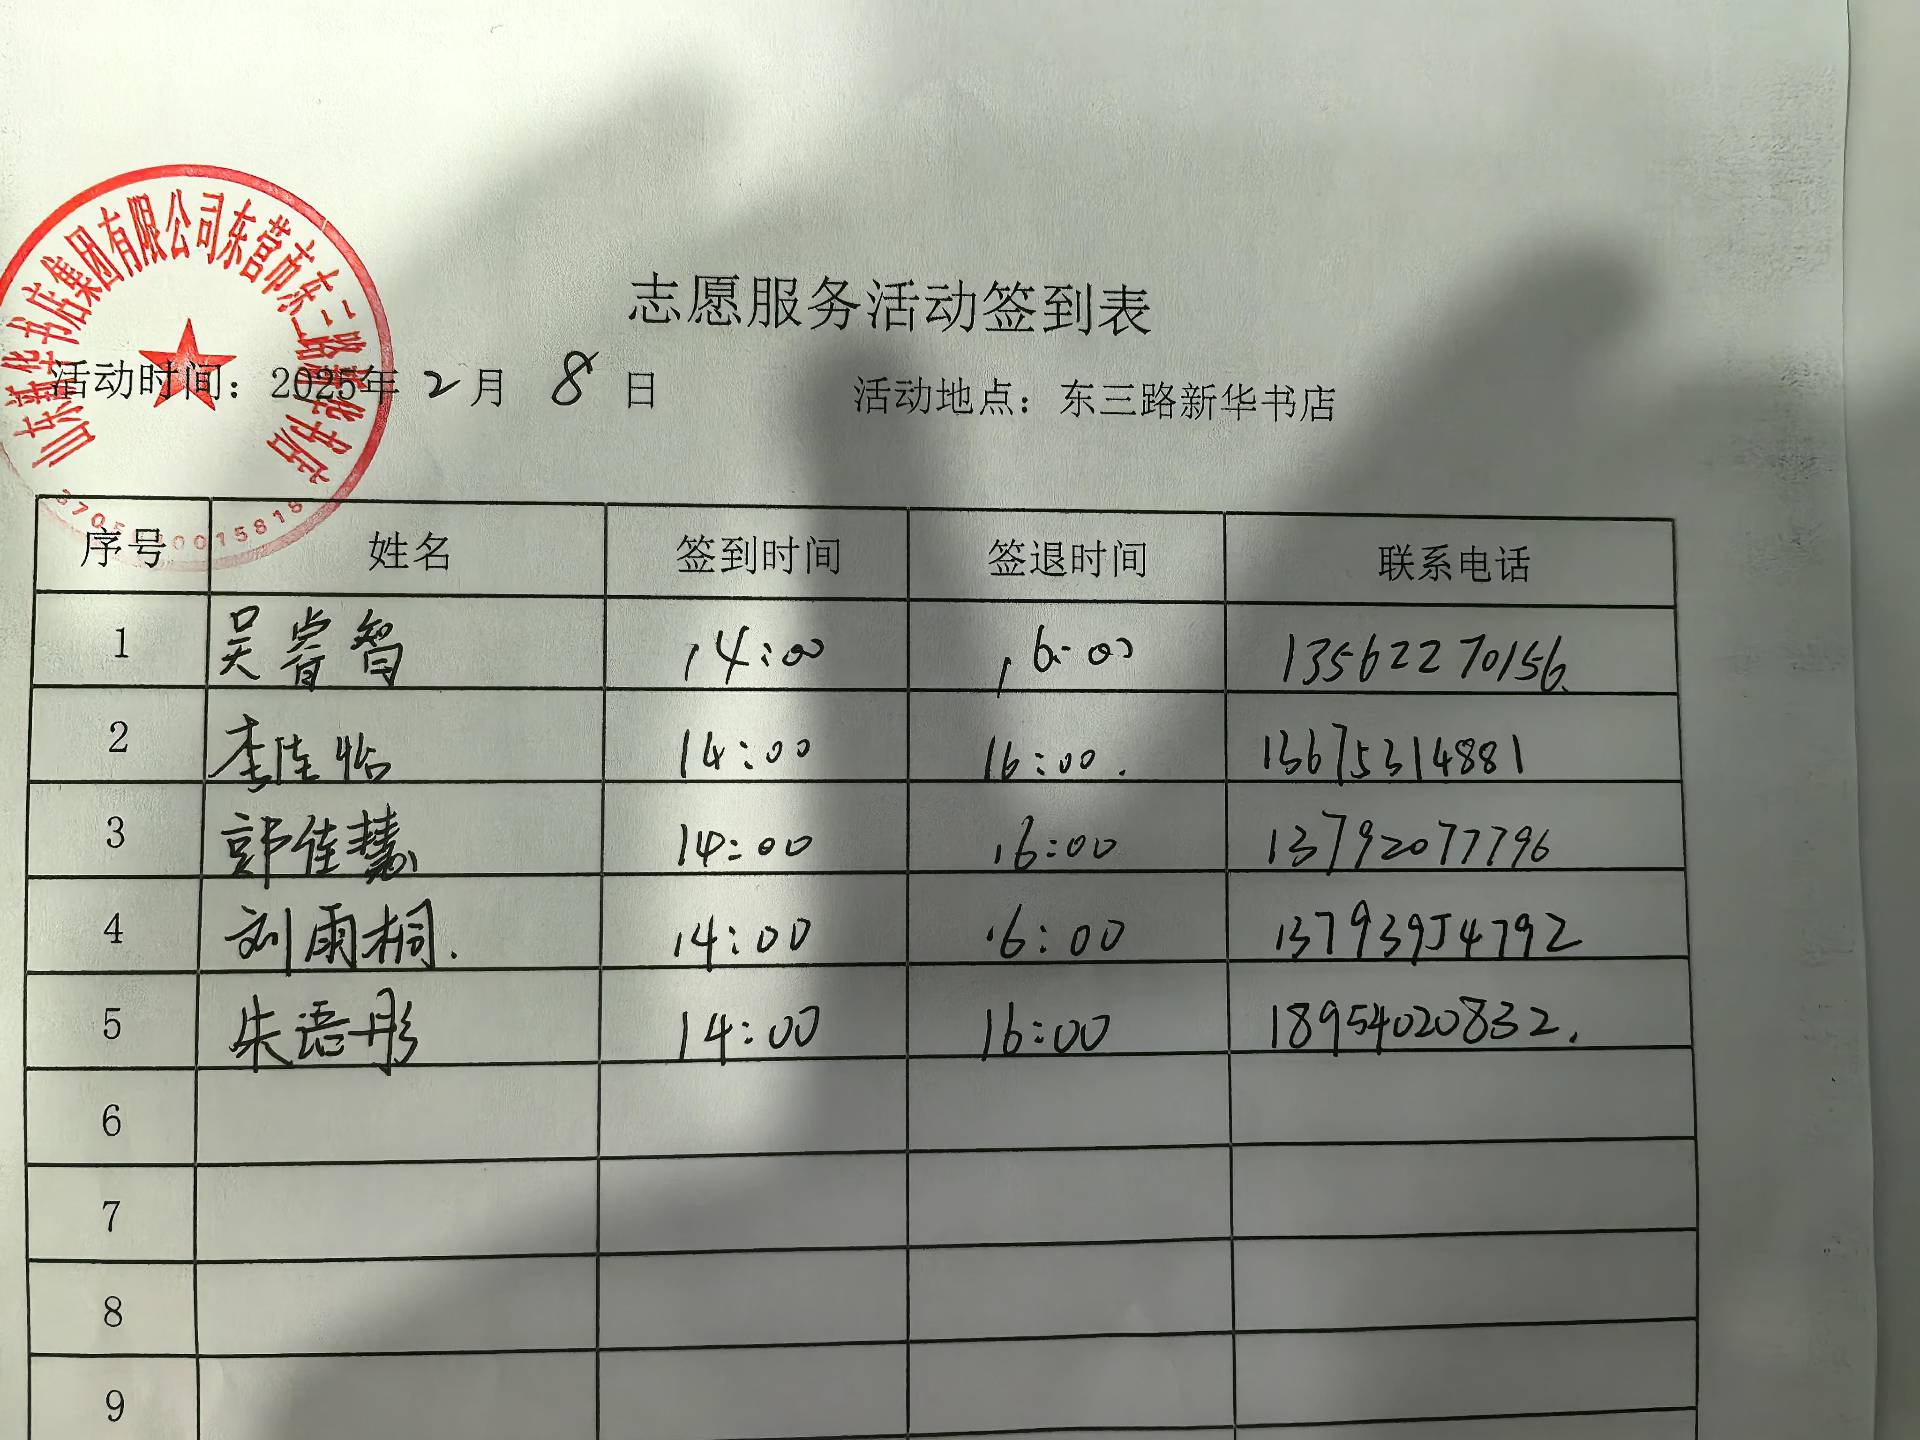 山东新华书店集团有限公司东营市东三路新华书店
志愿服务活动签到表
活动时间：2025年 2 月 8 日 活动地点：东三路新华书店
序号 姓名 签到时间 签退时间 联系电话
1 吴睿智 14:00 16:00 13562270156
2 李佳怡 14:00 16:00. 13675314881
3 郭佳慧 14:00 16:00 13792077796
4 刘雨桐. 14:00 16:00 13793954792
5 朱语彤 14:00 16:00 18954020832.
6
7
8
9